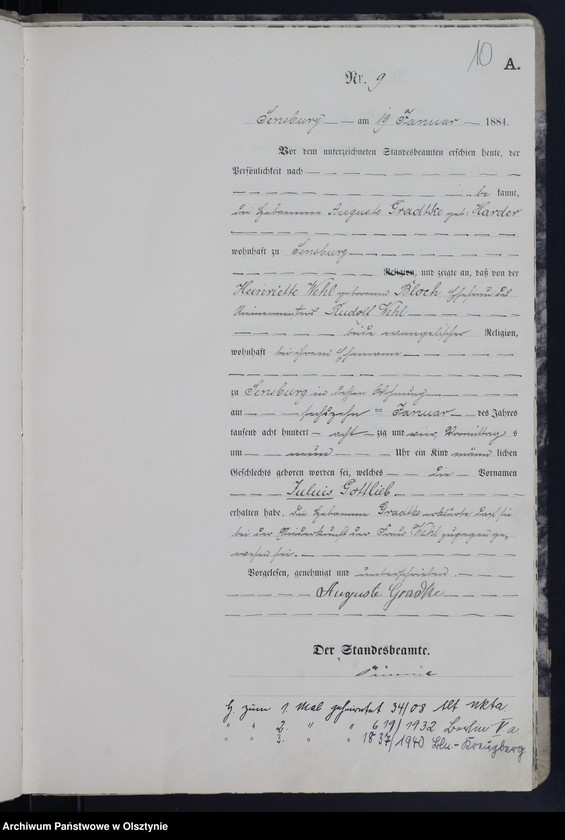 10 A.
Nr. 9
Sensburg am 19 Januar 1884.
Vor dem unterzeichneten Standesbeamten erschien heute, der
Persönlichkeit nach
be kannt,
die Hebamme Auguste Gradtke geb: Harder
wohnhaft zu Sensburg
Religion, und zeigte an, daß von der
Heinriette Wehl geborenen Bloch Ehefrau des
Rudolf Wehl
beide evangelischer Religion,
wohnhaft bei ihrem Ehemanne
zu Sensburg in dessen Wohnung
am sechszehn ten Januar des Jahres
tausend acht hundert acht zig und vier, Vormittag s
um neun Uhr ein Kind männ lichen
Geschlechts geboren worden sei, welches die Vornamen
Julius Gottlieb
erhalten habe. Die Hebamme Gradtke erklärte, daß sie
bei der Niederkunft der Frau Wehl zugegen ge-
wesen sei.
Vorgelesen, genehmigt und unterschrieben
Auguste Gradke
Der Standesbeamte.
H. zum 1. Mal geheiratet 34/08 Alt Ukta
" " 2. " " 619/1932 Berlin V a
" " 3. " " 1837/1940 Bln.-Kreuzberg
Archiwum Państwowe w Olsztynie